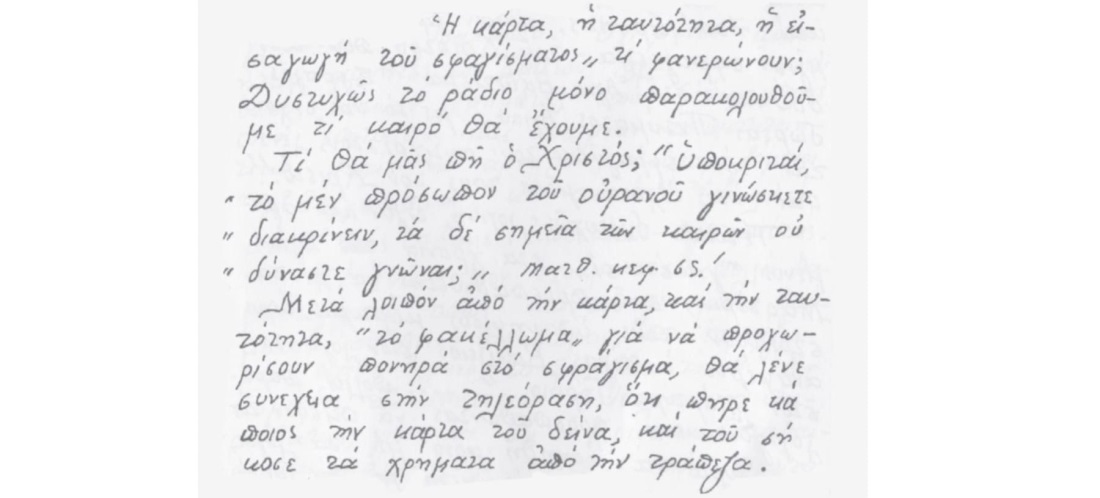 Ἡ κάρτα, ἡ ταυτότητα, ἡ εἰ-
σαγωγή τοῦ σφαγίσματος„ τί φανερώνουν;
Δυστυχῶς τό ράδιο μόνο παρακολουθοῦ-
με τί καιρό θά ἔχουμε.
Τί θά μᾶς πῆ ὁ Χριστός; "Ὑποκριταί,
"τό μέν πρόσωπον τοῦ οὐρανοῦ γινώσκετε
"διακρίνειν, τά δέ σημεῖα τῶν καιρῶν οὐ
"δύναστε γνῶναι;„ Ματθ. κεφ. ις.'
Μετά λοιπόν ἀπό τήν κάρτα, καί τήν ταυ-
τότητα, "τό φακέλλωμα„ γιά νά προχω-
ρίσουν πονηρά στό σφράγισμα, θά λένε
συνεχεια στήν τηλεόραση, ὅτι πηρε κά
ποιος τήν κάρτα τοῦ δείνα, καί τοῦ σή
κοσε τά χρηματα ἀπό τήν τράπεζα.